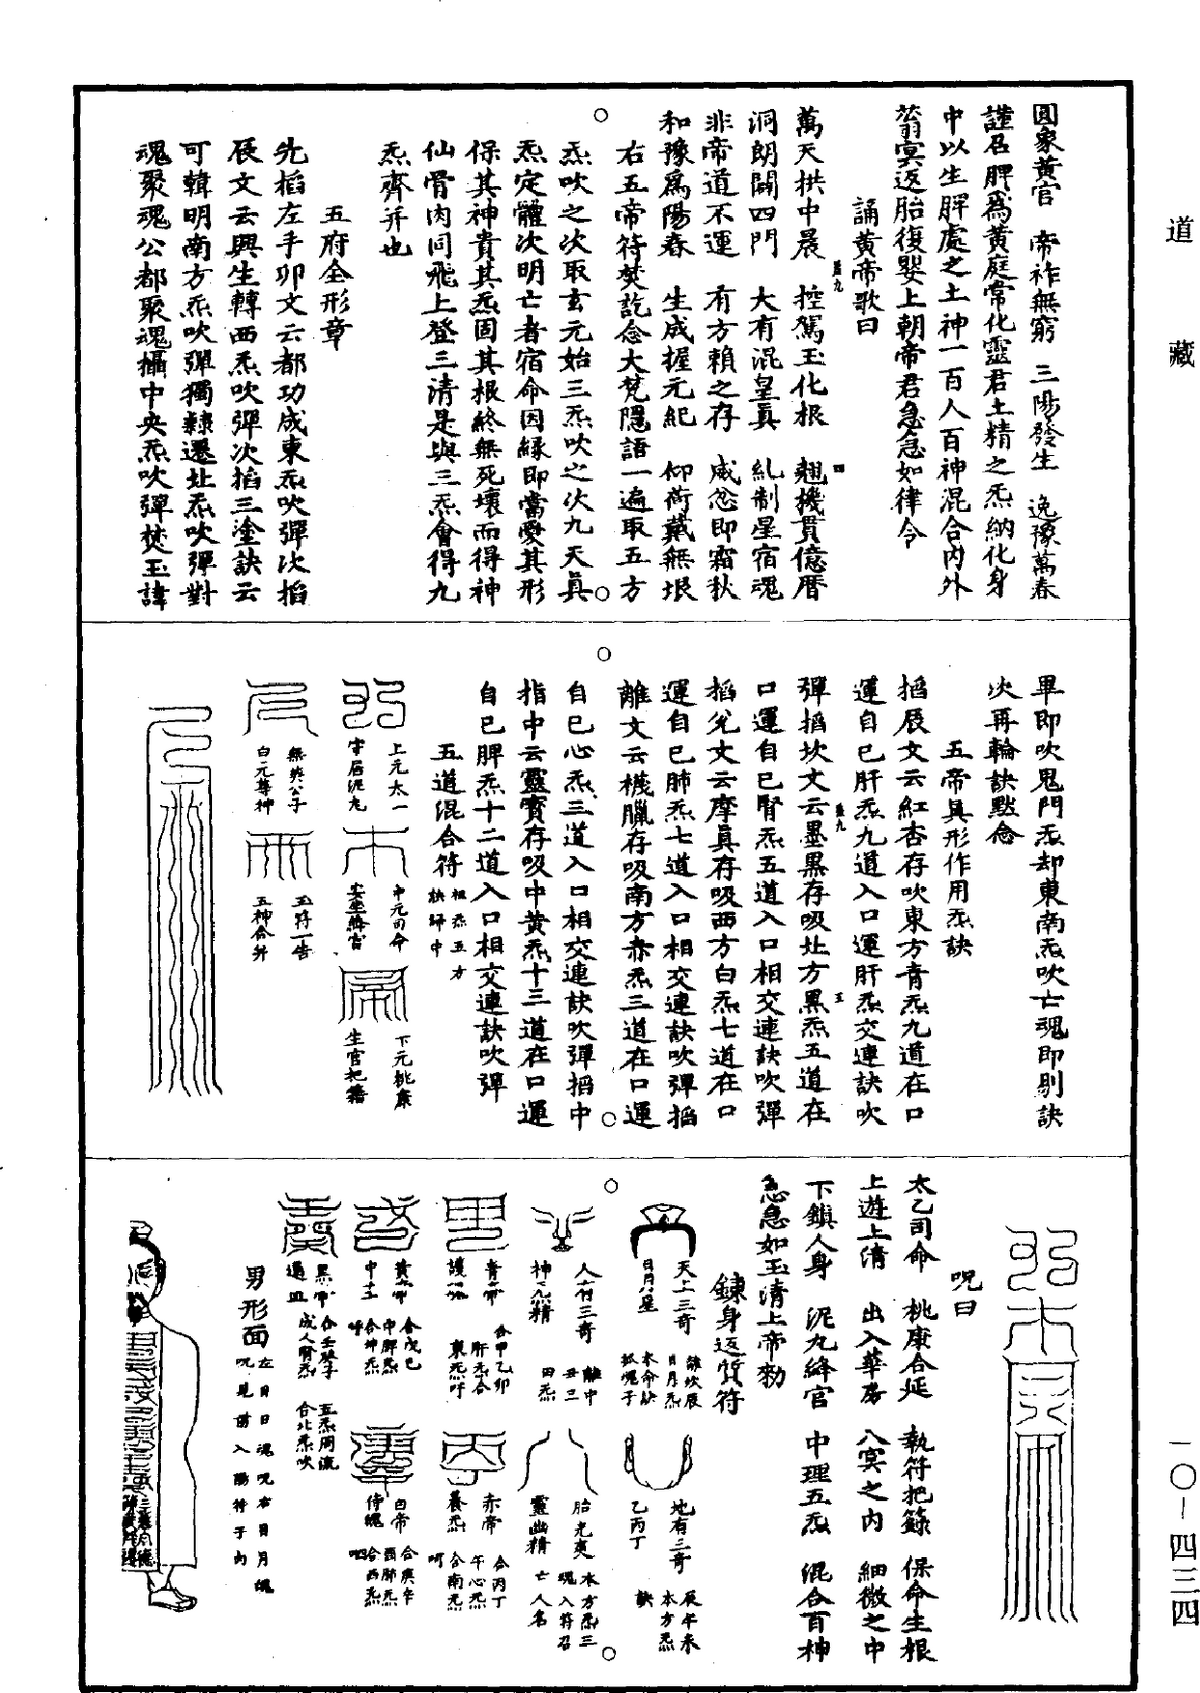 道藏
圓象黃官　帝祚無窮　三陽發生　逸豫萬春
謹召脾爲黃庭常化靈君土精之炁納化身
中以生脾處之土神一百人百神混合內外
蓊冥返胎復嬰上朝帝君急急如律令
誦黃帝歌曰
萬天拱中晨　控駕玉化根　翹機貫億曆
洞朗闢四門　大有混皇眞　糺制星宿魂
非帝道不運　有方賴之存　咸忿即霜秋
和豫爲陽春　生成握元紀　仰荷戴無垠
右五帝符焚訖念大梵隱語一遍取五方
炁吹之次取玄元始三炁吹之次九天眞
炁定體次明亡者宿命因緣即當愛其形
保其神貴其炁固其根終無死壞而得神
仙骨肉同飛上登三清是與三炁會得九
炁齊并也
五府全形章
先掐左手卯文云都功成東炁吹彈次掐
辰文云興生轉西炁吹彈次掐三塗訣云
可韓明南方炁吹彈獨隸遷北炁吹彈對
魂聚魂公都聚魂攝中央炁吹彈焚玉諱
畢即吹鬼門炁却東南炁吹亡魂即剔訣
次再輪訣默念
五帝具形作用炁訣
掐辰文云紅杏存吹東方青炁九道在口
運自己肝炁九道入口運肝炁交連訣吹
彈掐坎文云墨黑存吸北方黑炁五道在
口運自己腎炁五道入口相交連訣吹彈
掐兌文云摩眞存吸西方白炁七道在口
運自己肺炁七道入口相交連訣吹彈掐
離文云機臘存吸南方赤炁三道在口運
自己心炁三道入口相交連訣吹彈掐中
指中云靈寶存吸中黃炁十三道在口運
自己脾炁十二道入口相交連訣吹彈
五道混合符
祖炁五方
訣歸中
上元太一
守居泥丸
中元司命
安坐絳宮
下元桃康
生官把籍
無英公子
白元尊神
玉符一告
五神合并
呪曰
太乙司命　桃康合延　執符把籙　保命生根
上遊上清　出入華房　八冥之內　細微之中
下鎮人身　泥丸絳官　中理五炁　混合百神
急急如玉清上帝勑
鍊身返質符
天上三奇
日月星
離坎辰
日月炁
本命訣
抓魄子
地有三奇
乙丙丁
辰午未
本方炁
訣
人有三奇
神炁精
離中
丑三
田炁
胎光爽
靈幽精
本方炁三
魂入符召
亡人名
青帝
護魂
合甲乙卯
肝炁合
東炁吁
赤帝
養炁
合丙丁
午心炁
合南炁
呵
黃帝
中主
合戊己
中脾炁
合坤炁
呼
白帝
侍魄
合庚辛
酉肺炁
合西炁
呬
黑帝
通血
合壬癸子
成人腎炁
五炁周流
合北炁吹
男形面
左目日魂呪右目月魄
呪見前入陽待子內
一〇－四三四